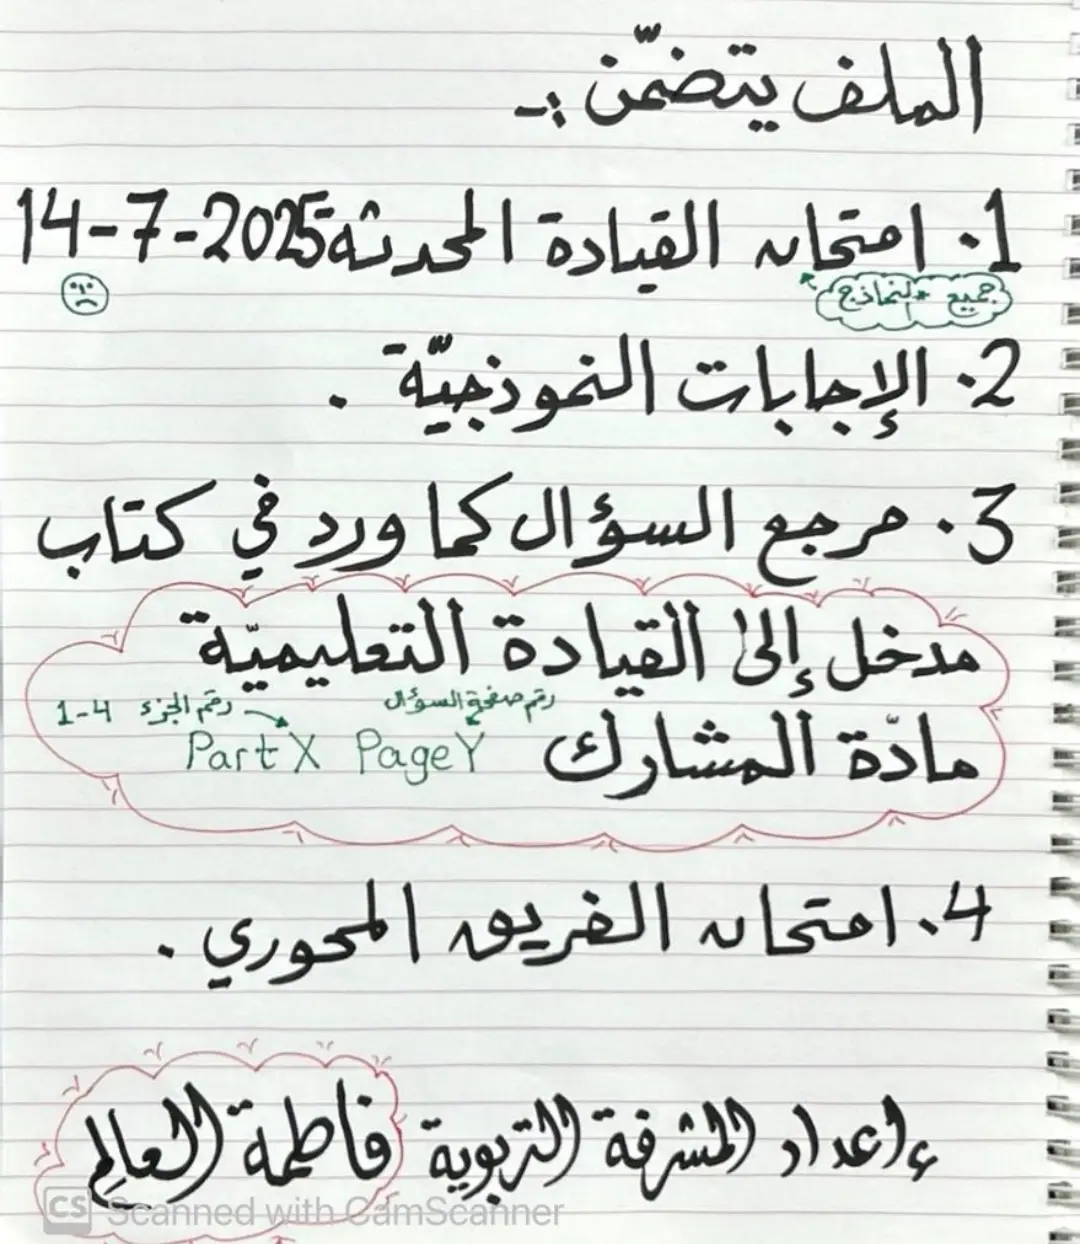 الملف يتضمّن :-
1. امتحان القيادة المحدثة 14-7-2025
جميع النماذج
2. الإجابات النموذجيّة .
3. مرجع السؤال كما ورد في كتاب
مدخل إلى القيادة التعليميّة
رقم صفحة السؤال رقم الجزء 1-4
مادّة المشارك PageY PartX
4. امتحان الفريق المحوري .
إعداد المشرفة التربوية فاطمة العالم
CS Scanned with CamScanner